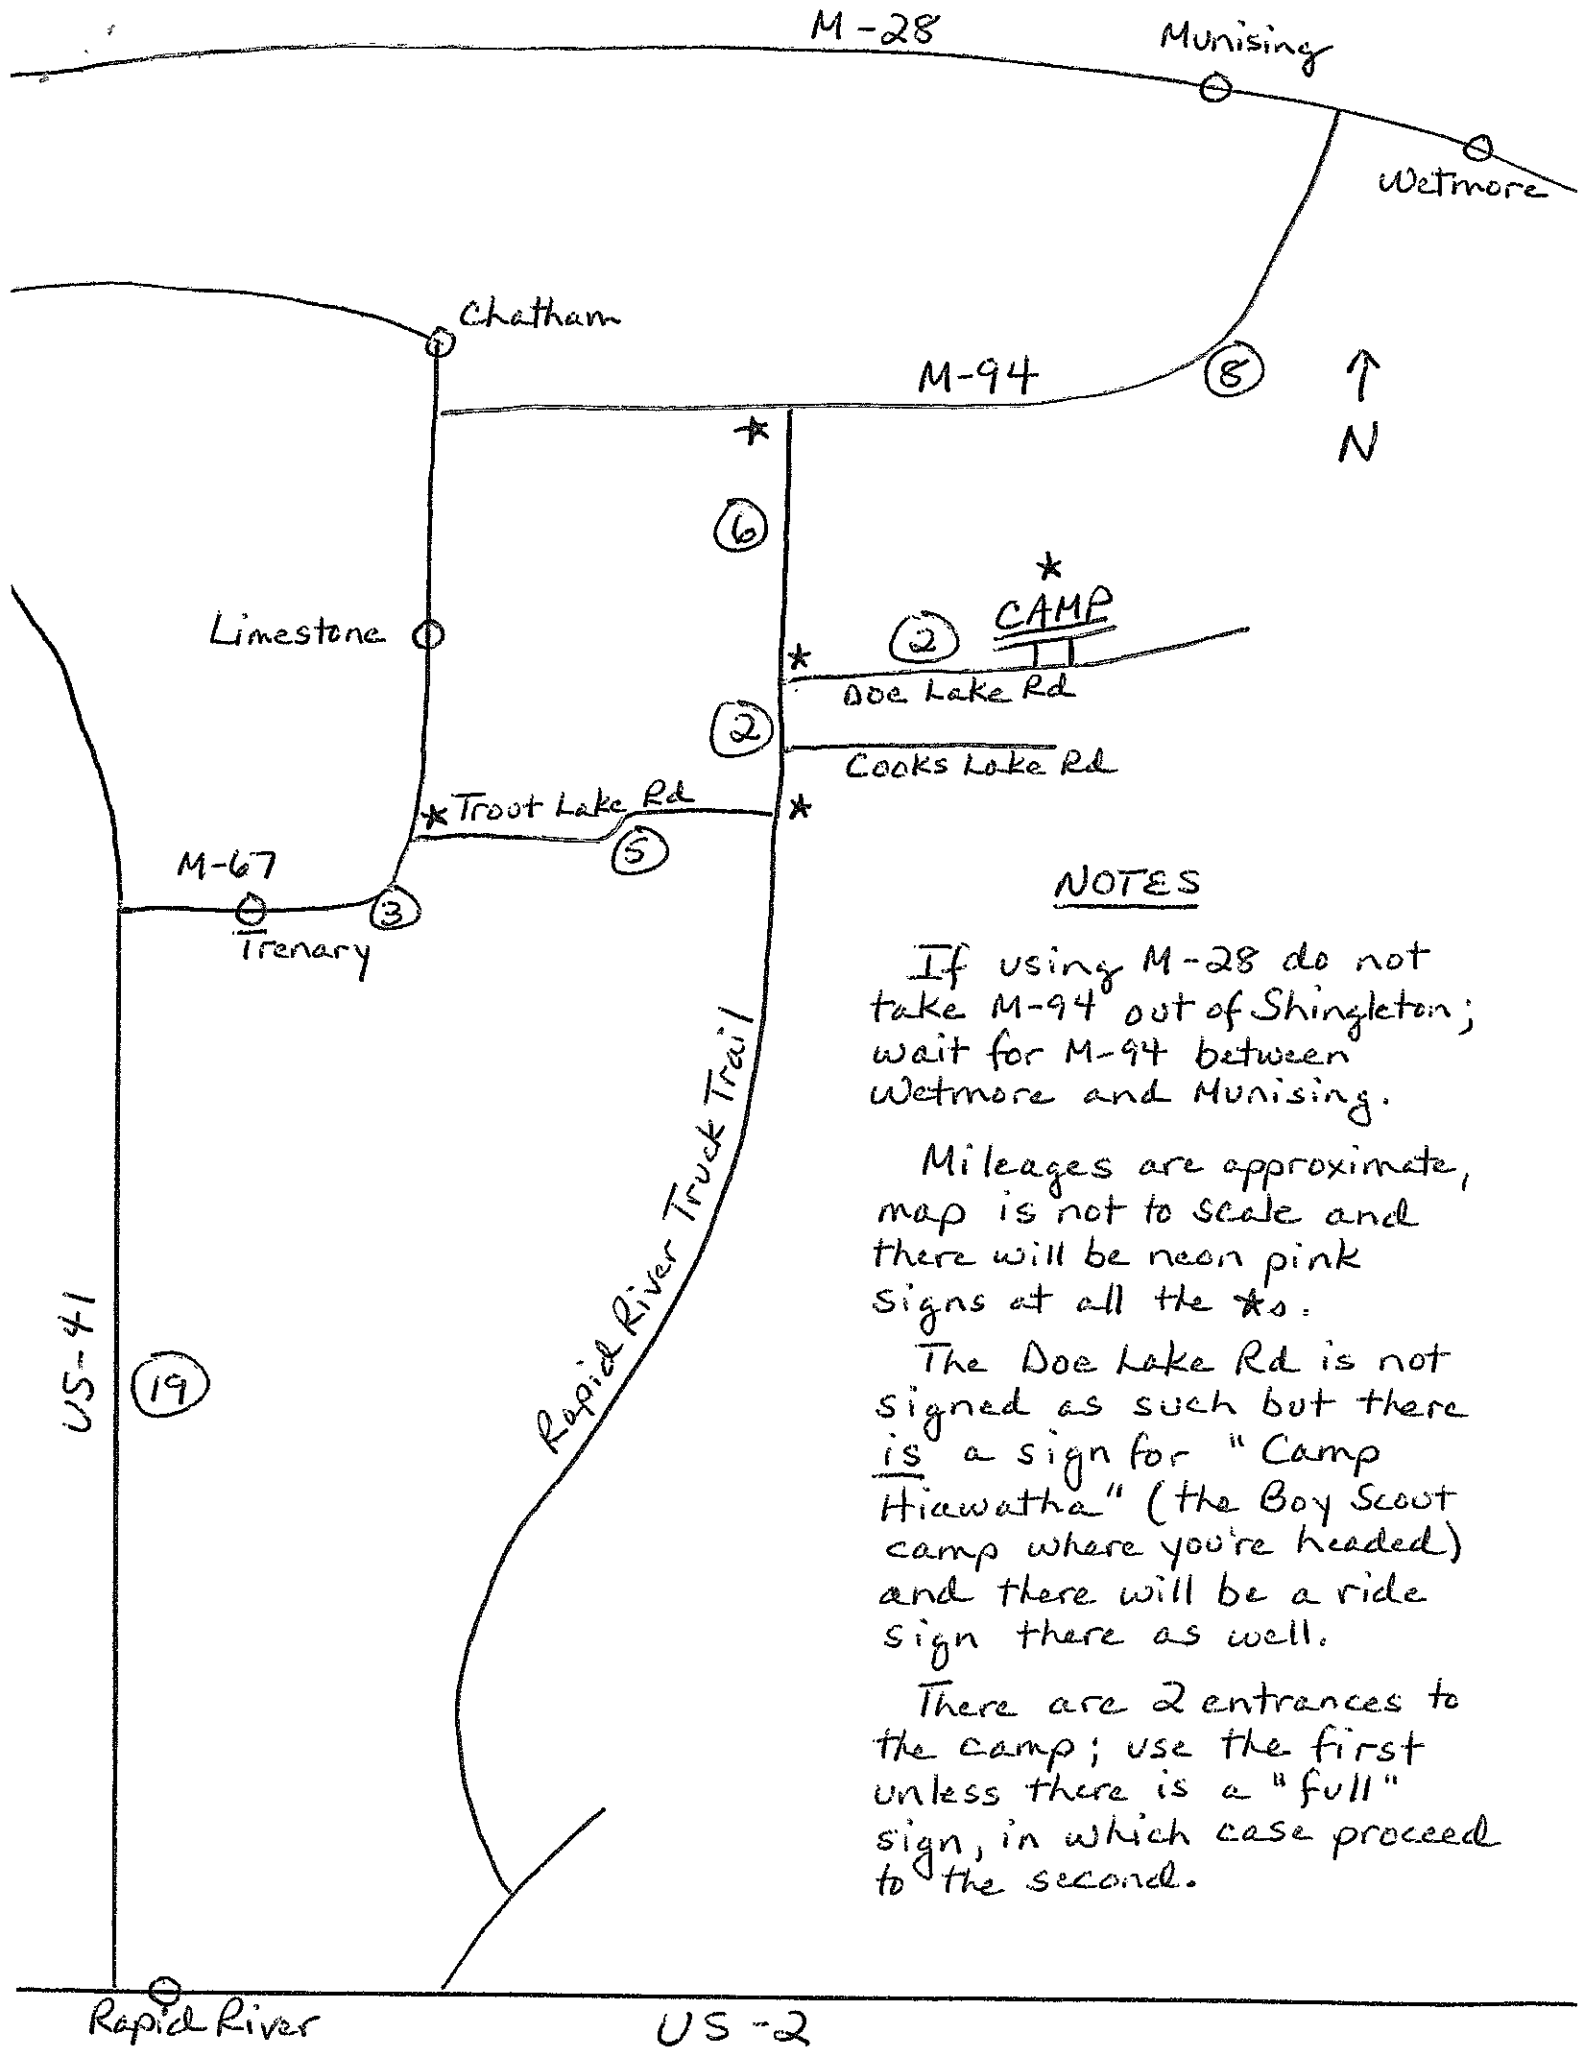 M-28
Munising
Wetmore
Chatham
M-94
8
↑
N
★
6
★
CAMP
Limestone
2
★
Doe Lake Rd
2
Cooks Lake Rd
★ Trout Lake Rd
★
5
M-67
3
Trenary
NOTES
If using M-28 do not
take M-94 out of Shingleton;
wait for M-94 between
Wetmore and Munising.
Mileages are approximate,
map is not to scale and
there will be neon pink
signs at all the ★s.
The Doe Lake Rd is not
signed as such but there
is a sign for "Camp
Hiawatha" (the Boy Scout
camp where you're headed)
and there will be a ride
sign there as well.
There are 2 entrances to
the camp; use the first
unless there is a "full"
sign, in which case proceed
to the second.
Rapid River Truck Trail
US-41
19
Rapid River
US-2